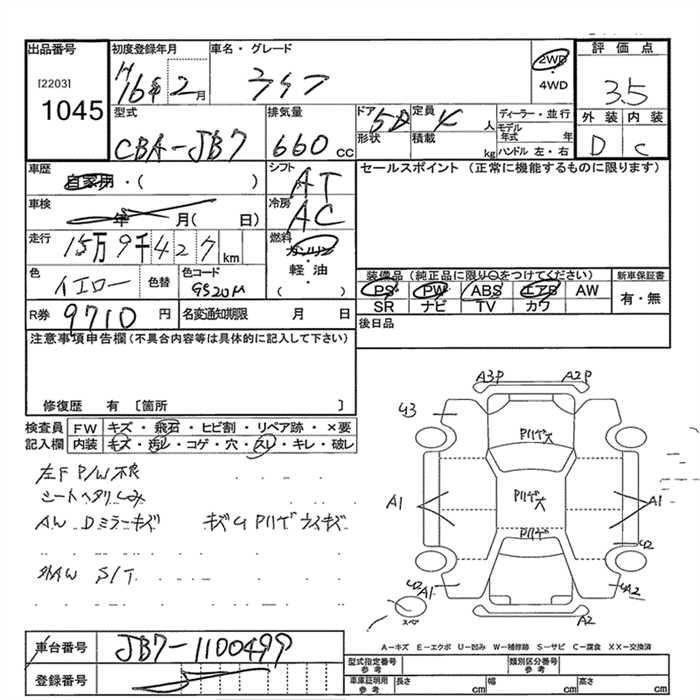 出品番号 初度登録年月 車名・グレード 評価点
[2203] H16年2月 ライフ 2WD
・
4WD 3.5
1045
型式 排気量 ドア 5D 定員 4人 ディーラー・並行 外装 内装
CBA-JB7 660cc 形状 積載 kg モデル年式 年
ハンドル 左・右 D C
車歴 自家用・( ) シフト AT セールスポイント (正常に機能するものに限ります)
車検 年 月( 日) 冷房 AC
走行 15万9千427km 燃料 ガソリン
軽油
・
( )
色 イエロー 色替 色コード 装備品(純正品に限り○をつけてください) 新車保証書
PS PW ABS エアB AW 有・無
SR ナビ TV カワ
R券 9710円 名変通知期限 月 日 後日品
注意事項申告欄(不具合内容等は具体的に記入して下さい)
修復歴 有 〔箇所 〕
検査員 FW キズ・飛石・ヒビ割・リペア跡・×要
記入欄 内装 キズ・汚レ・コゲ・穴・スレ・キレ・破レ
左F P/W不良
シートヘタリ
AW Dミラーキズ
外AW S/T
A3P A2P
U3
Pハゲ大
A1 Pハゲ大 A1
Pハゲ
U2
U2 A1 A2
スペア A2
A-キズ E-エクボ U-凹み W-補修跡 S-サビ C-腐食 XX-交換済
車台番号 JB7-1100499
登録番号
型式指定番号 参考 類別区分番号 参考
車庫証明用 参考 長さ cm 幅 cm 高さ cm